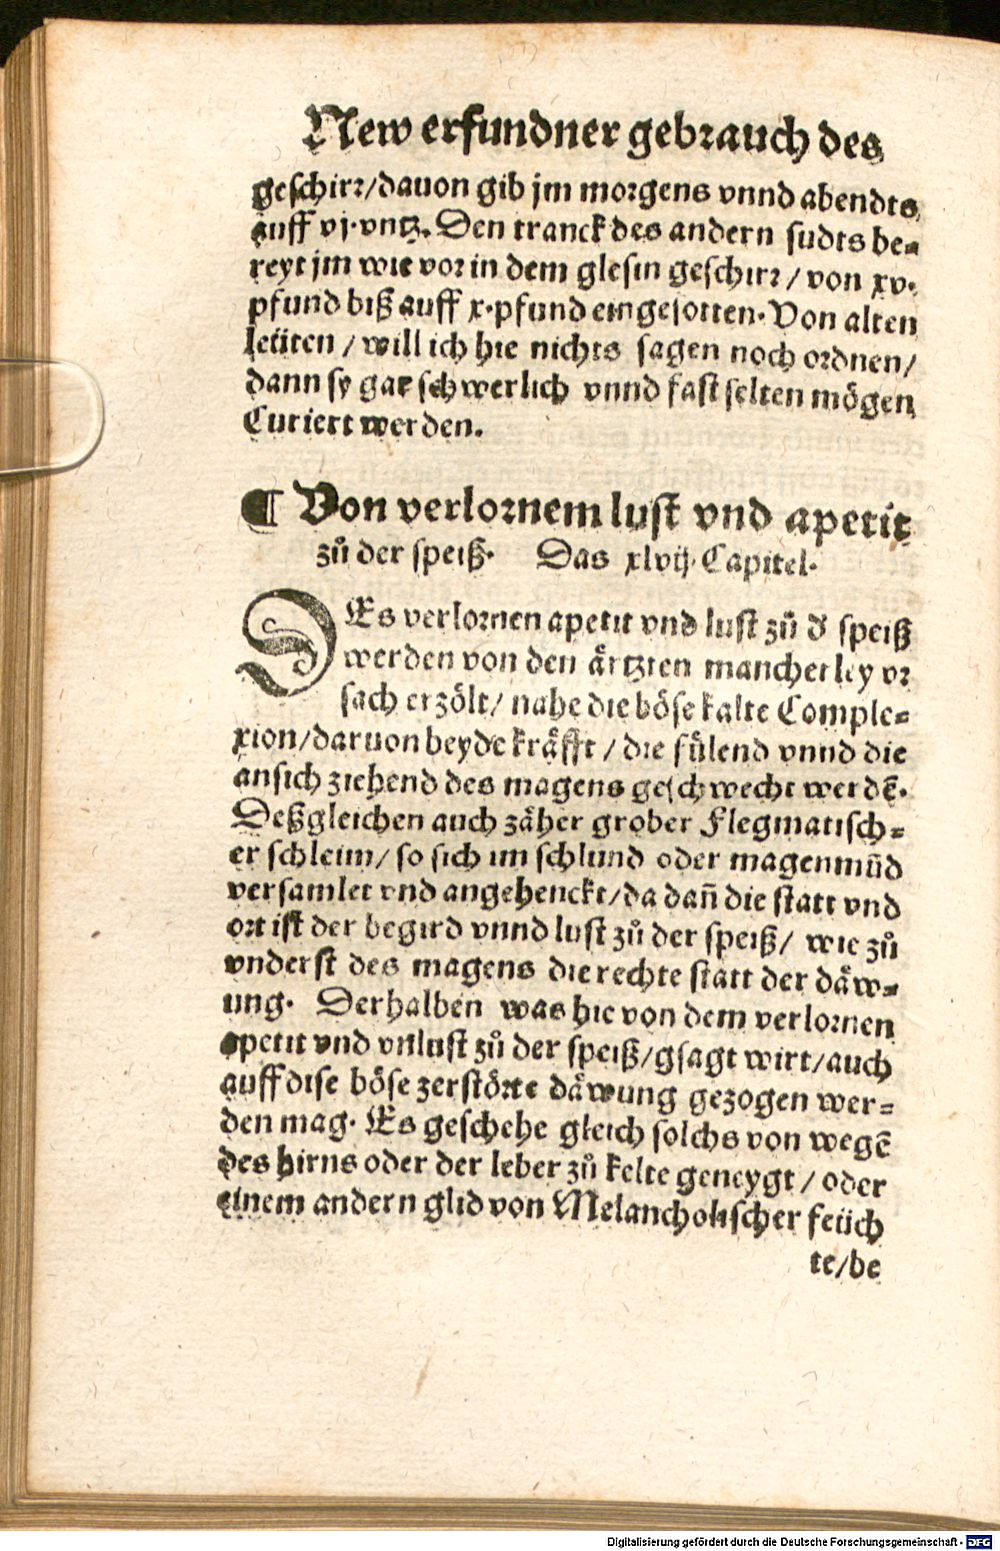 New erfundner gebrauch des
geschirr/dauon gib jm morgens vnnd abendts
auff vj·vntz. Den tranck des andern sudts be-
reyt jm wie vor in dem glesin geschirr / von xv·
pfund biß auff x·pfund eingesotten· Von alten
leüten / will ich hie nichts sagen noch ordnen/
dann sy gar schwerlich vnnd fast selten mögen
Curiert werden.
¶ Von verlornem lust vnd apetit
zů der speiß· Das xlvij· Capitel·
DEs verlornen apetit vnd lust zů d' speiß
werden von den ärtzten mancherley vr
sach erzölt/ nahe die böse kalte Comple-
xion/daruon beyde kräfft / die fülend vnnd die
ansich ziehend des magens geschwecht werdē·
Deßgleichen auch zäher grober Flegmatisch-
er schleim/ so sich im schlund oder magenmūd
versamlet vnd angehenckt/da dañ die statt vnd
ort ist der begird vnnd lust zů der speiß/ wie zů
vnderst des magens die rechte statt der däw-
ung· Derhalben was hie von dem verlornen
apetit vnd vnlust zů der speiß/gsagt wirt/auch
auff dise böse zerstörte däwung gezogen wer-
den mag· Es geschehe gleich solchs von wegē
des hirns oder der leber zů kelte geneygt / oder
einem andern glid von Melancholischer feüch
te/be
Digitalisierung gefördert durch die Deutsche Forschungsgemeinschaft - DFG